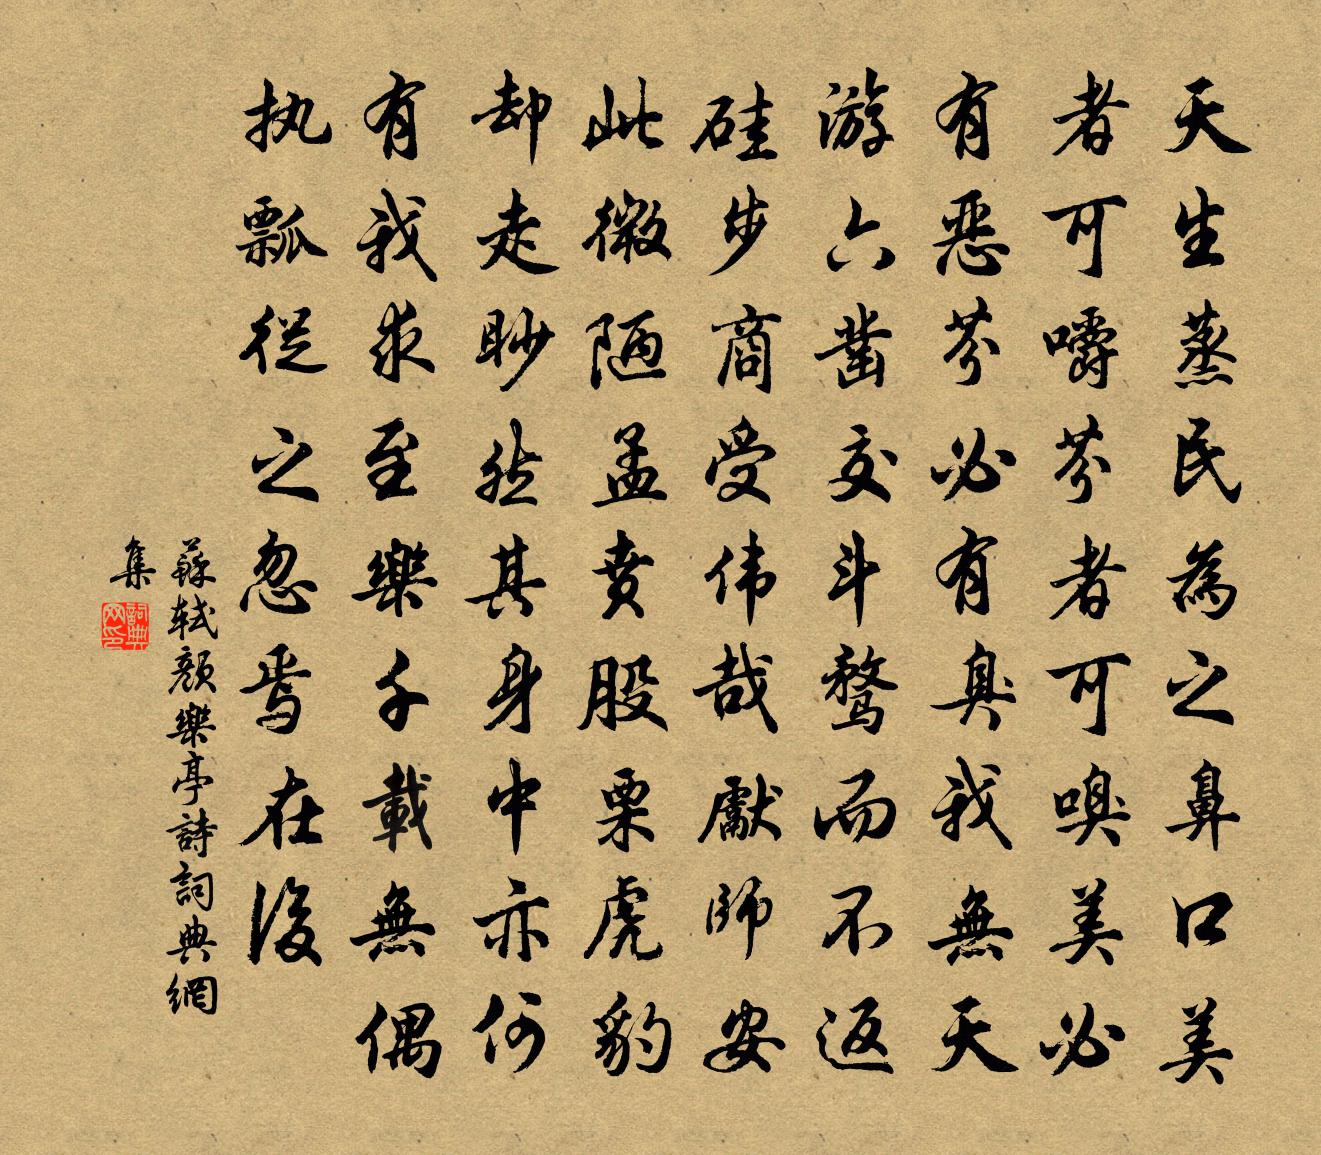 天生蒸民為之鼻口美
者可嚼芬者可嗅美必
有惡芬必有臭我無天
游六凿交斗鹜而不返
硅步商受伟哉獻師安
此微陋孟贲股栗虎豹
却走眇然其身中亦何
有我求至樂千載無偶
执瓢從之忽焉在後
蘇轼颜樂亭詩詞典網
集
詞典
网印